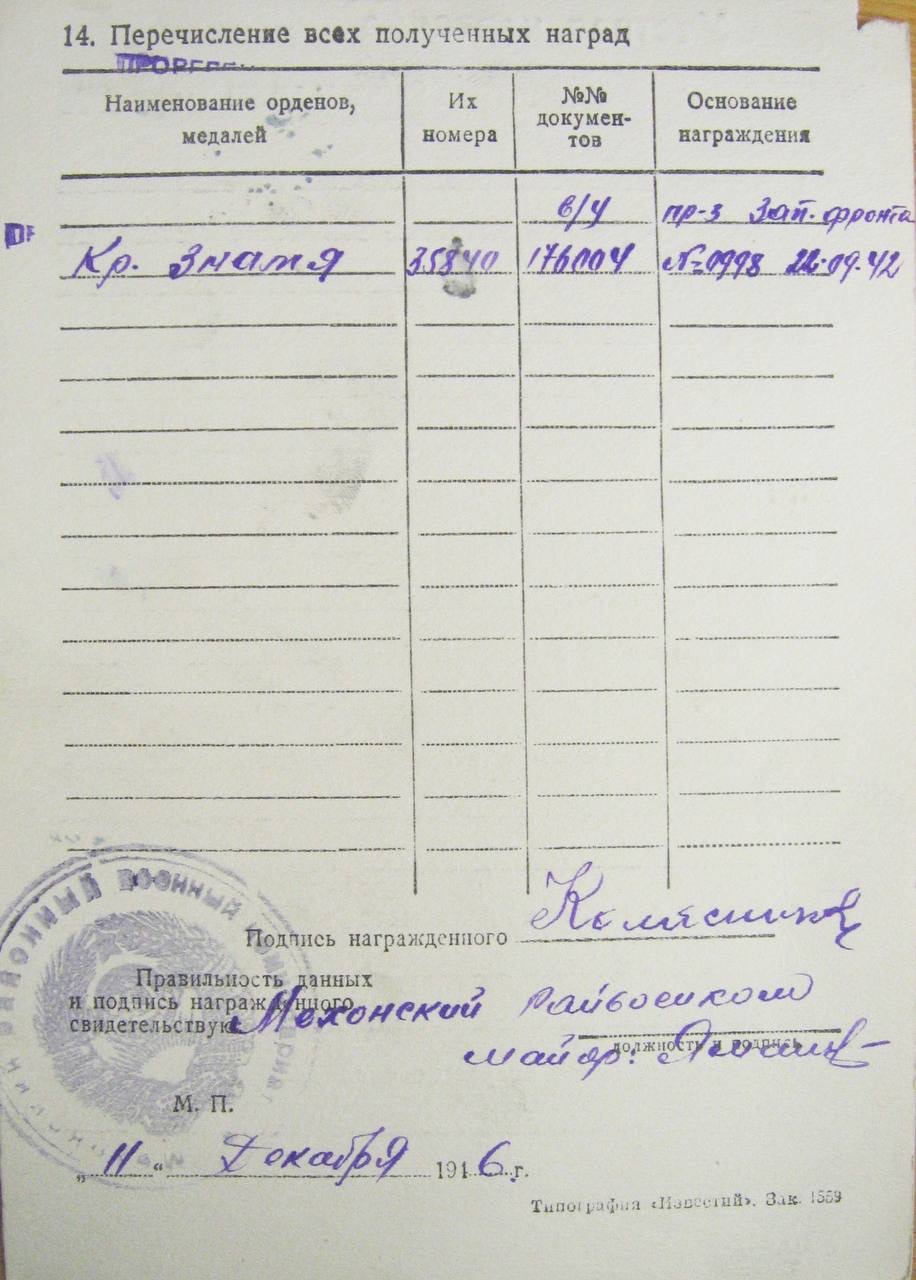 14. Перечисление всех полученных наград
Наименование орденов, медалей
Их номера
№№ документов
Основание награждения
в/у пр-з Зап. фронта
Кр. Знамя 35840 176004 №0998 22.09.42
Подпись награжденного
Правильность данных
и подпись награжденного
свидетельствую Мехонский Райвоенком
должность и подпись
майор:
М. П.
„ 11 “ Декабря 1946 г.
Типография «Известий». Зак. 1559
РАЙОННЫЙ ВОЕННЫЙ КОМИССАРИАТ